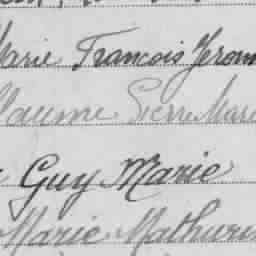 Marie François Jérom
llaume Pierre Marie
Guy Marie
Marie Mathurin